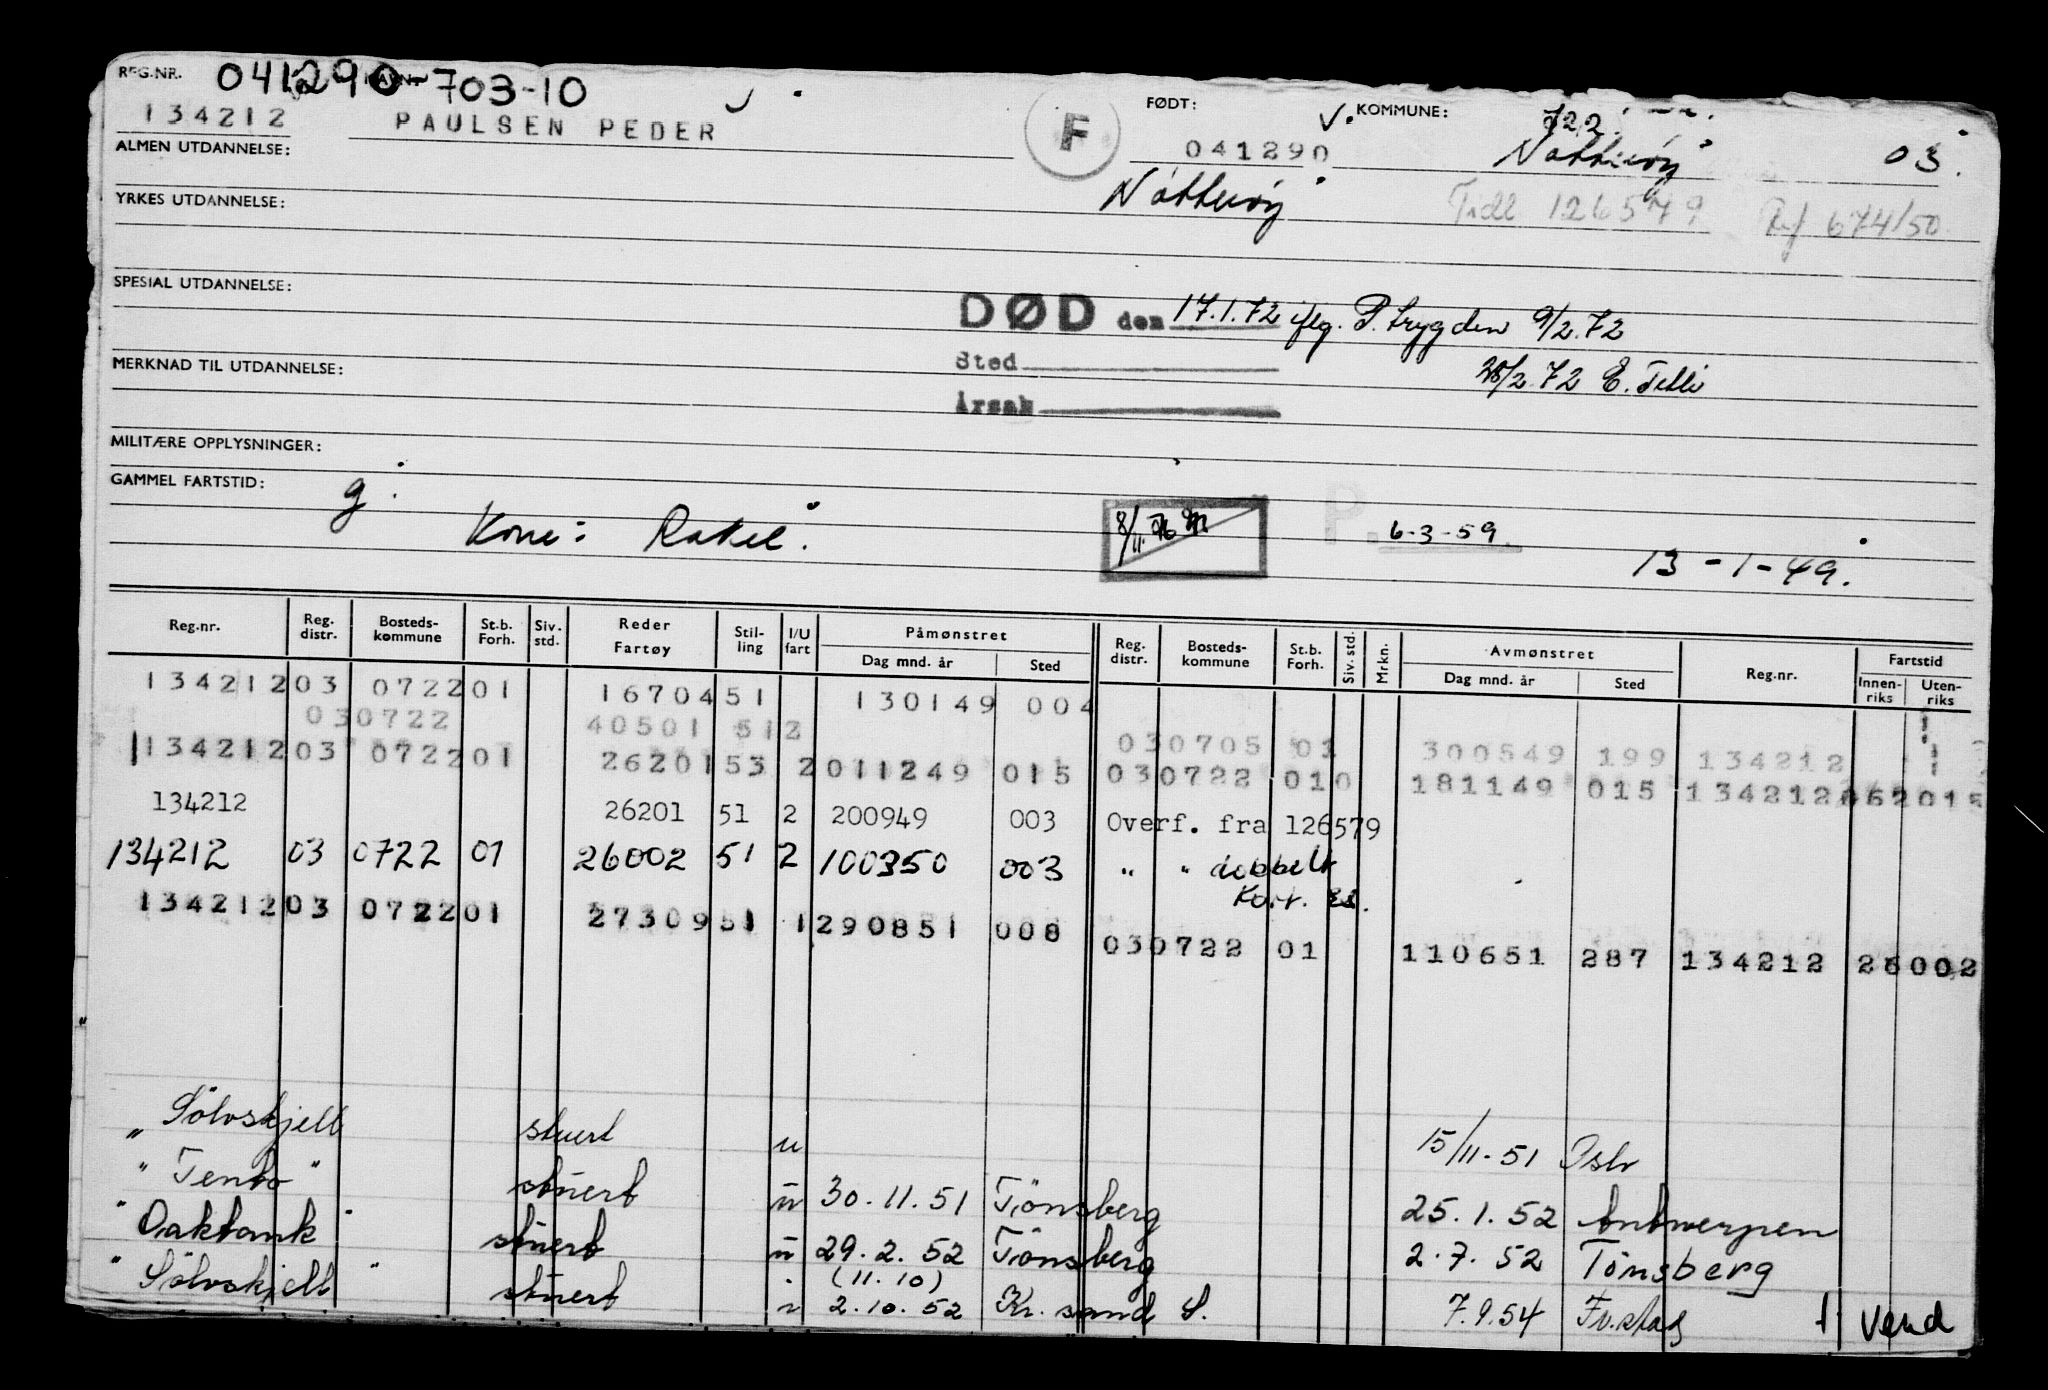 REG.NR. 041290-703-10 NAVN:
134212 PAULSEN PEDER F FØDT: 041290 KOMMUNE: 722 Nøtterøy 03
ALMEN UTDANNELSE:
Nøtterøy Tidl 126579 Ref 674/50
YRKES UTDANNELSE:
SPESIAL UTDANNELSE:
DØD den 17.1.72 iflg. P.trygden 9/2.72
Sted
28/2.72
MERKNAD TIL UTDANNELSE:
Årsak
MILITÆRE OPPLYSNINGER:
GAMMEL FARTSTID: g.
Kone: Rakel. 8/11 P. 6-3-59 13-1-49.
Reg.nr. Reg. distr. Bosteds- kommune St.b. Forh. Siv. std. Reder Fartøy Stil- ling I/U fart Påmønstret Dag mnd. år Sted Reg. distr. Bosteds- kommune St.b. Forh. Siv. std. Mrkn. Avmønstret Dag mnd. år Sted Reg.nr. Fartstid Innen- riks Uten- riks
134212 03 0722 01 16704 51 130149 004
030722 40501 512 030705 01 300549 199 134212
134212 03 0722 01 26201 53 2 011249 015 030722 010 181149 015 134212 015
134212 26201 51 2 200949 003 Overf. fra 126579
134212 03 0722 01 26002 51 2 100350 003 " " dobbelt
kort.
134212 03 0722 01 27309 51 1 290851 008
030722 01 110651 287 134212 26002
"Sölvskjell stuert u 15/11-51 Oslo
"Tento" stuert u 30.11.51 Tönsberg 25.1.52 Antwerpen
"Oaktank" stuert u 29.2.52 Tönsberg 2.7.52 Tönsberg
(11.10)
"Sölvskjell" stuert 2.10.52 Kr.sand S. 7.9.54 Fr.stad Vend